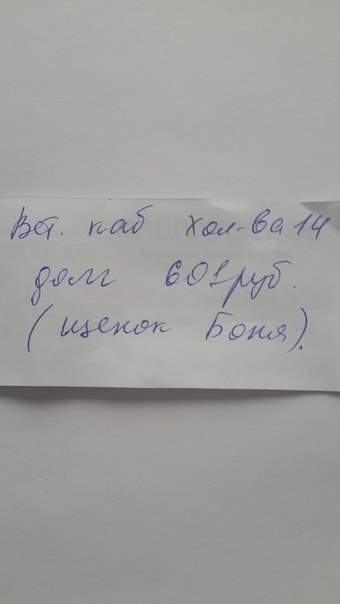 Вет. каб Хол-ва 14
долг 601 руб.
(щенок Боня).